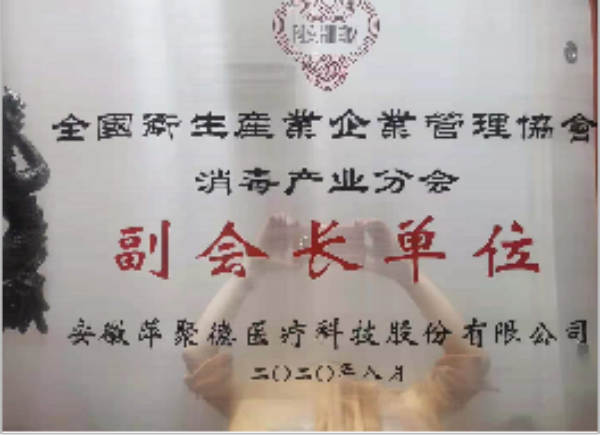 全國衛生産業企業管理協會
消毒产业分会
副会长单位
安徽萍聚德医疗科技股份有限公司
二〇二〇年八月